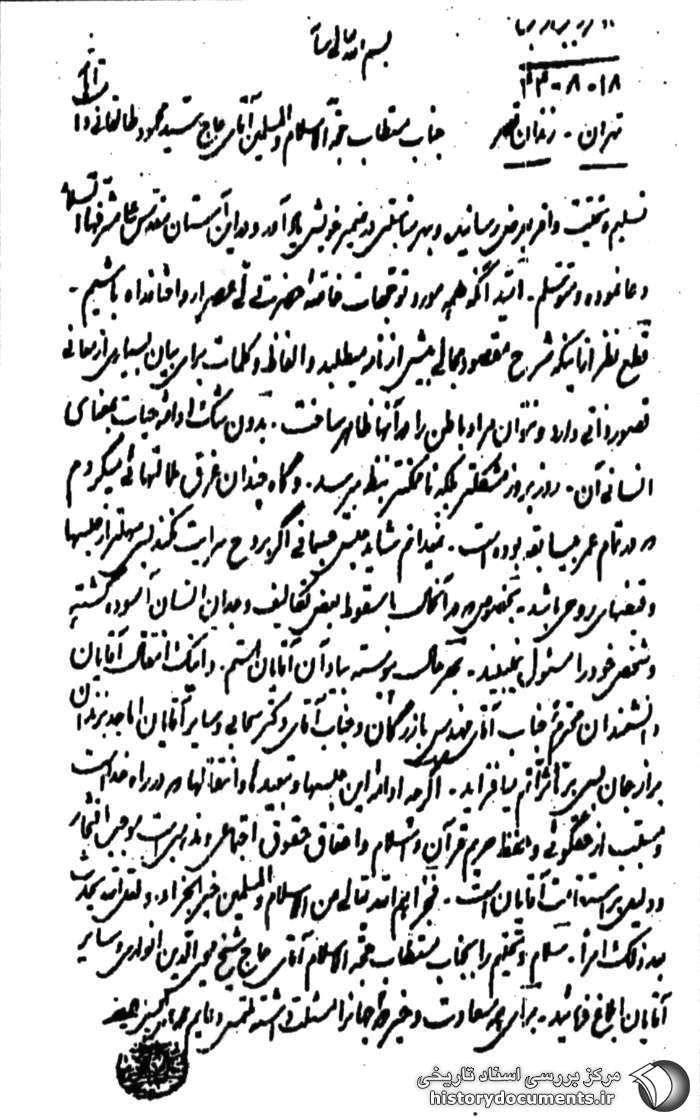 بسم الله تعالی شأنه
۱۸-۸-۴۴
تهران - زندان قصر
جناب مستطاب حجة الاسلام والمسلمین آقای حاج سید محمود طالقانی دا
تسلیم و تحیت وافر بعرض رسانیده و بهر مناسبتی در ضمیر خویش یاد آور و در این آستان مقدس علی مشرفها
دعا نموده و متوسلم. امید آنکه همه مورد توجهات خاصه حضرت ولی عصر ارواحنا فداه باشیم.
قطع نظر از اینکه شرح مقصود مجالی بیش از نامه میطلبد و الفاظ و کلمات برای بیان بسیاری از معانی
قصور ذاتی دارد و نتوان مراد باطن را در آنها ظاهر ساخت. بدون شک ادامه حیات بمعنای
انسانی آن. روز بروز مشکلتر بلکه ناممکنتر بنظر میرسد. و گاه چندان غرق ملالتهائی میگردم
که در تمام عمر بیسابقه بوده است. نمیدانم شاید حبس جسمانی اگر بروح سرایت نکند بسی سهلتر از حبسها
و قفسهای روحی باشد. بخصوص که در آنحال با سقوط بعض تکالیف وجدان انسان آسوده گشته
و شخص خود را مسئول نمیبیند. بهرحال پیوسته بیاد آن آقایان هستم. و اینک انتقال آقایان
دانشمندان محترم جناب آقای مهندس بازرگان و جناب آقای دکتر سحابی و سایر آقایان اماجد بزندان
برازجان بسی بر تأثراتم میافزاید. اگرچه ادامه این حبسها و تبعیدها و انتقالها که در راه خداست
و مسبب از حقگوئی و حفظ حریم قرآن و اسلام و احقاق حقوق اجتماعی و مذهبی است موجب افتخار
و دلیل بر استقامت آقایان است. فجزاهم الله تعالی عن الاسلام والمسلمین خیر الجزاء. و لعل الله یحدث
بعد ذلک امراً. سلام و تحیتم را بجناب مستطاب حجة الاسلام آقای حاج شیخ محیی الدین انواری و سایر
آقایان ابلاغ فرمائید. برای همه سعادت و خیر
مرکز بررسی اسناد تاریخی
historydocuments.ir